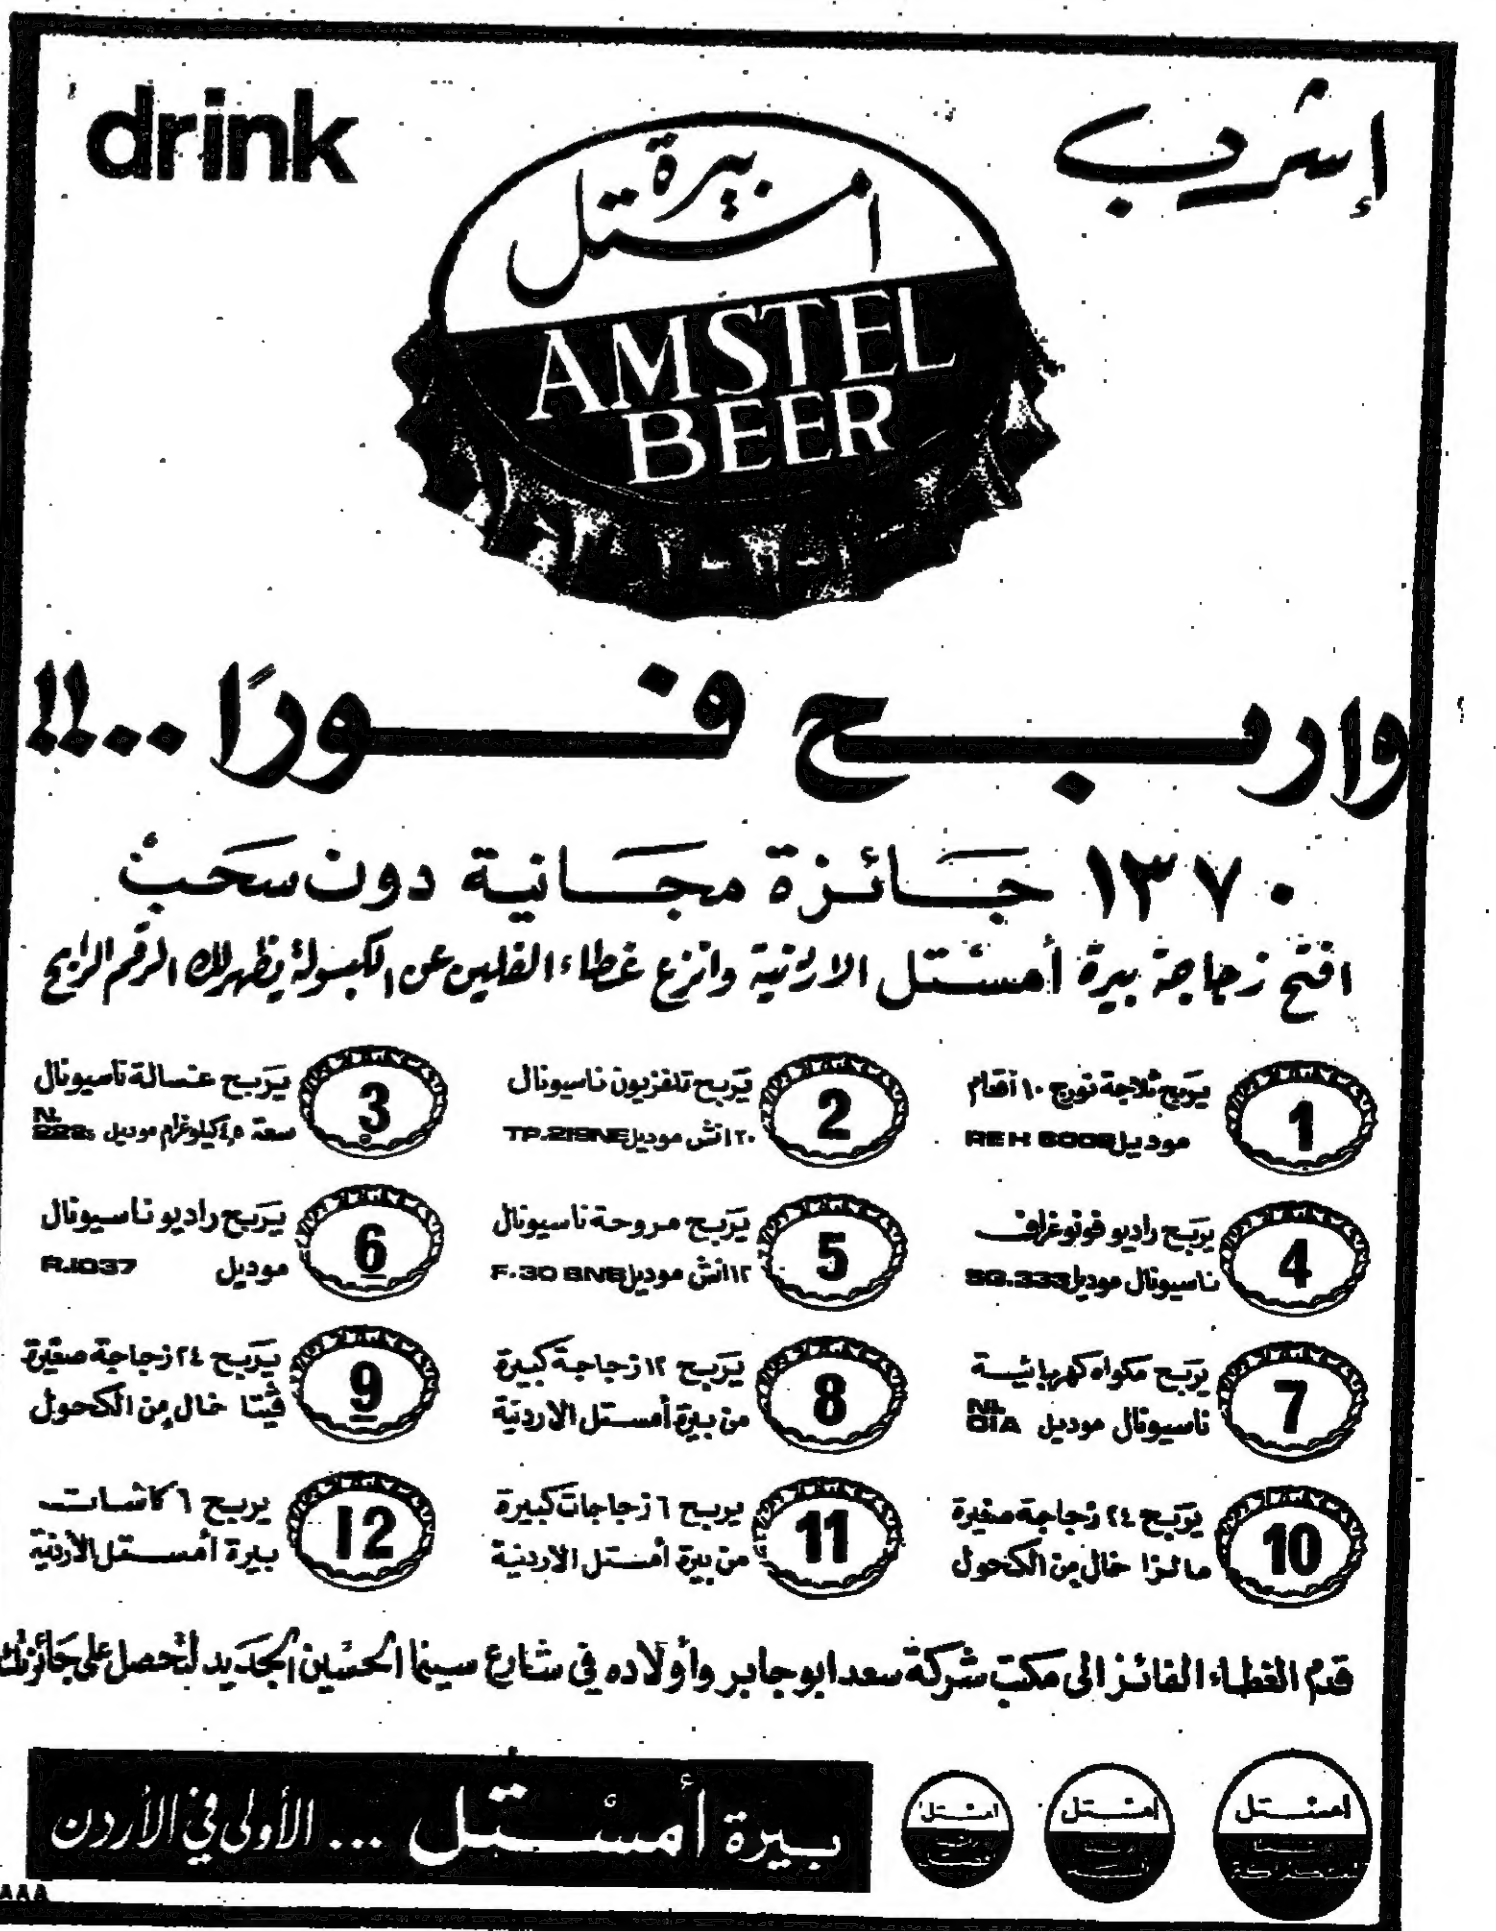 إشرب
drink
بيرة
أمستل
AMSTEL
BEER
واربح فورًا ..!!
١٣٧٠ جائزة مجانية دون سحب
افتح زجاجة بيرة أمستل الاردنية وانزع غطاء الفلين عن الكبسولة يظهر لك الرقم الرابح
1
يربح ثلاجة نورج ١٠ أقدام
موديل
2
يربح تلفزيون ناسيونال
٢٠ انش موديل TP.219NE
3
يربح غسالة ناسيونال
سعة ٤٫٥ كيلوغرام موديل N. 222
4
يربح راديو فونوغراف
ناسيونال موديل SG.333
5
يربح مروحة ناسيونال
١٢ انش موديل F.30 BNB
6
يربح راديو ناسيونال
موديل R.1037
7
يربح مكواه كهربائية
ناسيونال موديل NI. 01A
8
يربح ١٢ زجاجة كبيرة
من بيرة أمستل الاردنية
9
يربح ٢٤ زجاجة صغيرة
ڤيتا خال من الكحول
10
يربح ٢٤ زجاجة صغيرة
مالزا خال من الكحول
11
يربح ٦ زجاجات كبيرة
من بيرة أمستل الاردنية
12
يربح ٦ كاسات
بيرة أمستل الأردنية
قدم الغطاء الفائز الى مكتب شركة سعد ابو جابر وأولاده في شارع سينما الحسين الجديد لتحصل على جائزتك
أمستل
أمستل
أمستل
بيرة أمستل ... الأولى في الأردن